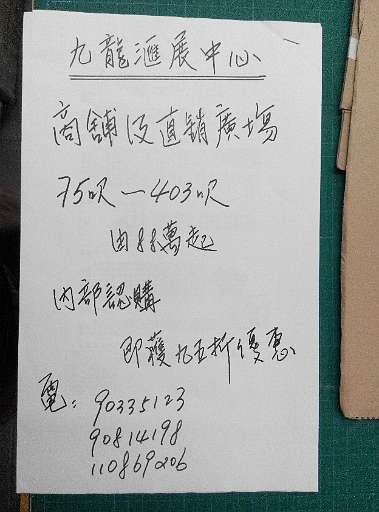 九龍滙展中心
商舖及直銷廣塲
75呎一403呎
由88萬起
內部認購
即獲九五折優惠
電：90335123
90814198
110869206